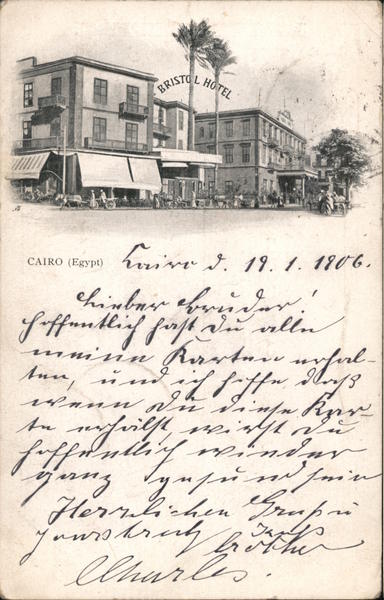 BRISTOL HOTEL
CAIRO (Egypt)
Kairo d. 19. 1. 1906.
Lieber Bruder!
Hoffentlich hast Du alle
meine Karten erhal-
ten, und ich hoffe daß
wenn Du diese Kar-
te erhälst wirst Du
hoffentlich wieder
ganz gesund sein
Herzlichen Gruss u
Charles.